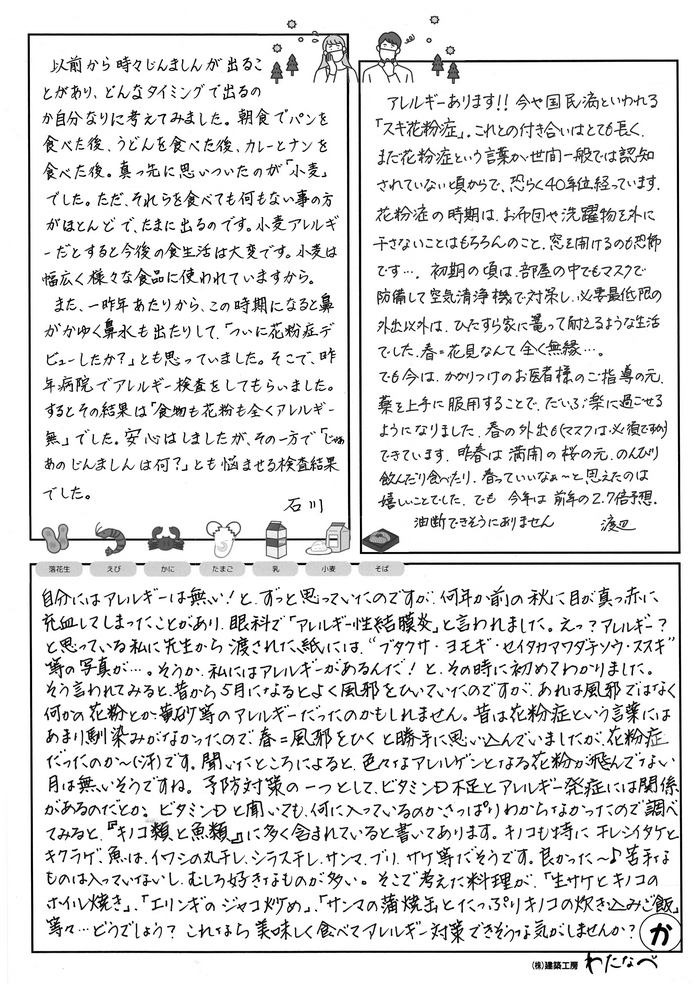 以前から時々じんましんが出るこ
とがあり、どんなタイミングで出るの
か自分なりに考えてみました。朝食でパンを
食べた後、うどんを食べた後、カレーとナンを
食べた後。真っ先に思いついたのが「小麦」
でした。ただ、それらを食べても何もない事の方
がほとんどで、たまに出るのです。小麦アレルギ
ーだとすると今後の食生活は大変です。小麦は
幅広く様々な食品に使われていますから。
また、一昨年あたりから、この時期になると鼻
がかゆく鼻水も出たりして、「ついに花粉症デ
ビューしたか?」とも思っていました。そこで、昨
年病院でアレルギー検査をしてもらいました。
するとその結果は「食物も花粉も全くアレルギー
無」でした。安心はしましたが、その一方で「じゃぁ
あのじんましんは何?」とも悩ませる検査結果
でした。
石川
アレルギーあります!! 今や国民病といわれる
「スギ花粉症」。これとの付き合いはとても長く、
まだ花粉症という言葉が世間一般では認知
されていない頃からで、恐らく40年位経っています。
花粉症の時期は、お布団や洗濯物を外に
干さないことはもちろんのこと、窓を開けるのも恐怖
です…。初期の頃は、部屋の中でもマスクで
防備して空気清浄機で対策し、必要最低限の
外出以外は、ひたすら家に篭って耐えるような生活
でした。春=花見なんて全く無縁…。
でも今は、かかりつけのお医者様のご指導の元、
薬を上手に服用することで、だいぶ楽に過ごせる
ようになりました。春の外出も(マスクは必須ですが)
できています。昨春は満開の桜の元、のんびり
飲んだり食べたり、春っていいなぁ~と思えたのは
嬉しいことでした。でも今年は前年の2.7倍予想。
油断できそうにありません 渡辺
落花生 えび かに たまご 乳 小麦 そば
自分にはアレルギーは無い!と、ずっと思っていたのですが、何年か前の秋に目が真っ赤に
充血してしまったことがあり、眼科で「アレルギー性結膜炎」と言われました。えっ?アレルギー?
と思っている私に先生から渡された紙には、“ブタクサ・ヨモギ・セイタカアワダチソウ・ススキ”
等の写真が…。そうか、私にはアレルギーがあるんだ!と、その時に初めてわかりました。
そう言われてみると、昔から5月になるとよく風邪をひいていたのですが、あれは風邪ではなく
何かの花粉とか黄砂等のアレルギーだったのかもしれません。昔は花粉症という言葉には
あまり馴染みがなかったので、春=風邪をひくと勝手に思い込んでいましたが、花粉症
だったのか~(汗)です。聞いたところによると、色々なアレルゲンとなる花粉が飛んでない
月は無いそうですね。予防対策の一つとして、ビタミンD不足とアレルギー発症には関係
があるのだとか。ビタミンDと聞いても、何に入っているのかさっぱりわからなかったので調べ
てみると、『キノコ類と魚類』に多く含まれていると書いてあります。キノコも特に干しイタケと
キクラゲ、魚は、イワシの丸干し、シラス干し、サンマ、ブリ、サケ等だそうです。良かった~♪苦手な
ものは入っていないし、むしろ好きなものが多い。そこで考えた料理が、「生サケとキノコの
ホイル焼き」、「エリンギのジャコ炒め」、「サンマの蒲焼缶とたっぷりキノコの炊き込みご飯」
等々…どうでしょう? これなら美味しく食べてアレルギー対策できそうな気がしませんか? か
(株)建築工房 わたなべ